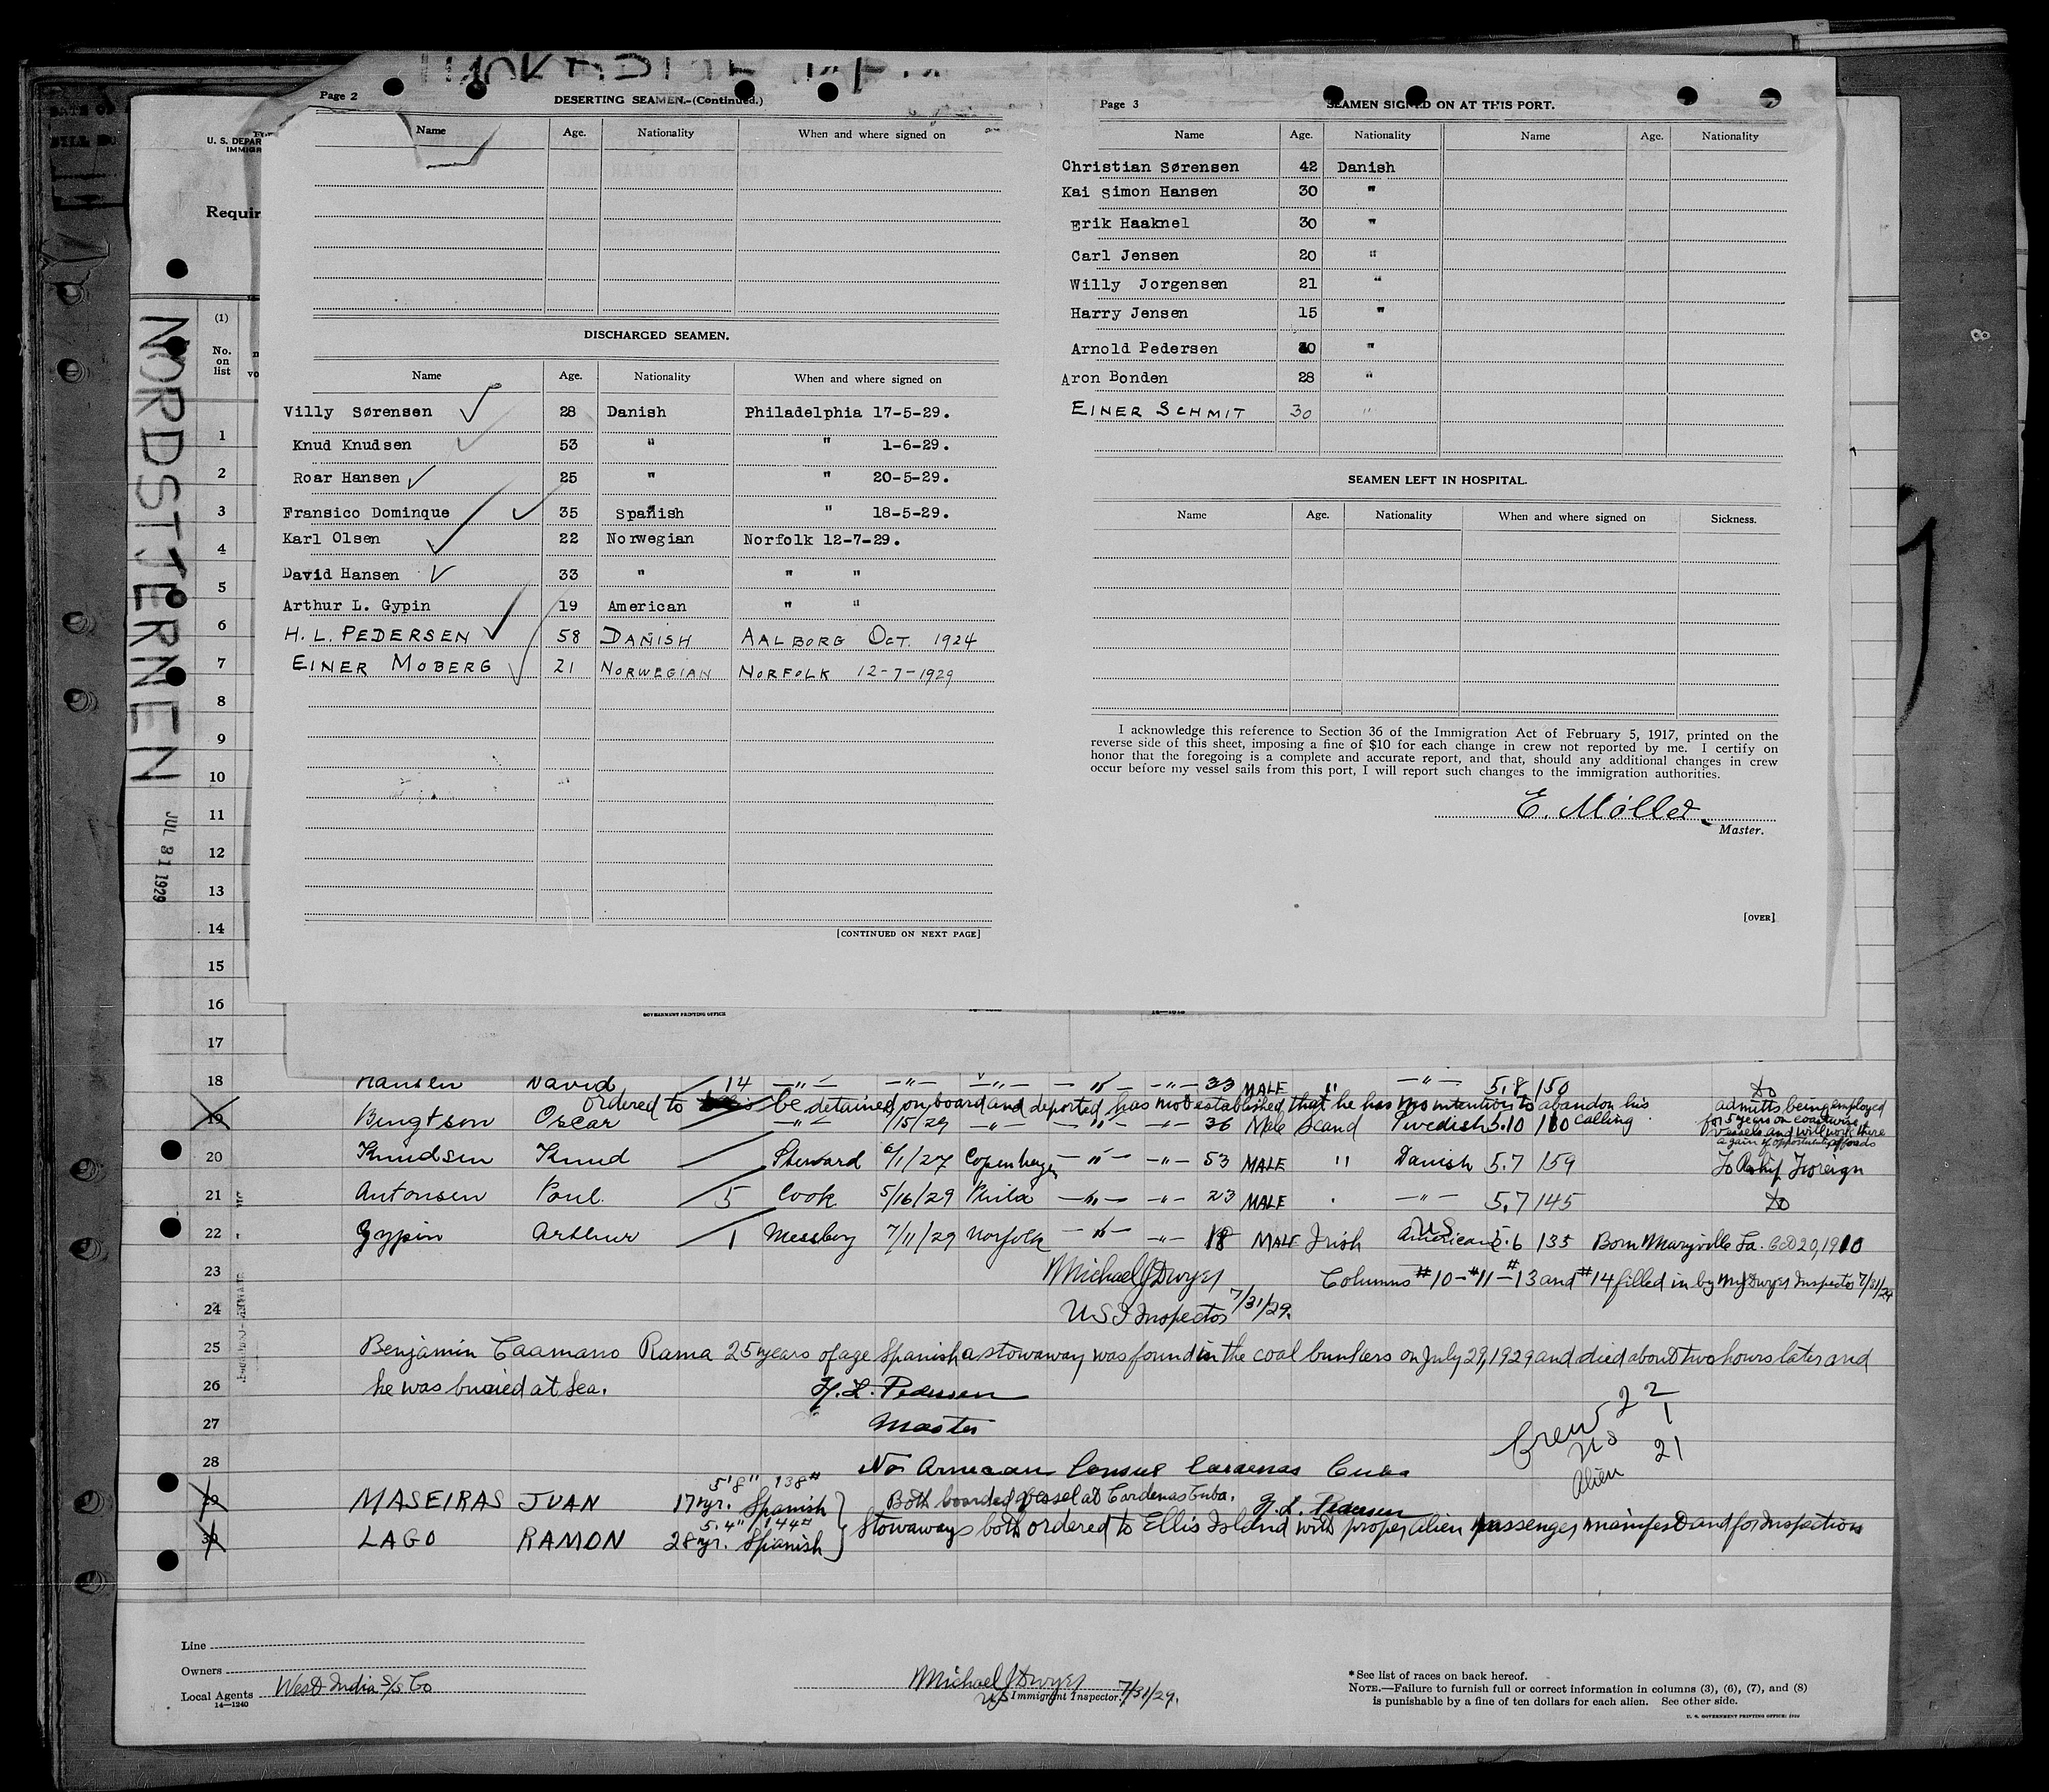 Page 2
DESERTING SEAMEN.-(Continued.)
Name Age. Nationality When and where signed on
DISCHARGED SEAMEN.
Name Age. Nationality When and where signed on
Villy Sørensen 28 Danish Philadelphia 17-5-29.
Knud Knudsen 53 " " 1-6-29.
Roar Hansen 25 " " 20-5-29.
Fransico Dominque 35 Spanish " 18-5-29.
Karl Olsen 22 Norwegian Norfolk 12-7-29.
David Hansen 33 " " "
Arthur L. Gypin 19 American " "
H. L. PEDERSEN 58 DANISH AALBORG OCT. 1924
EINER MOBERG 21 NORWEGIAN NORFOLK 12-7-1929
[CONTINUED ON NEXT PAGE]
Page 3
SEAMEN SIGNED ON AT THIS PORT.
Name Age. Nationality Name Age. Nationality
Christian Sørensen 42 Danish
Kai Simon Hansen 30 "
Erik Haaknel 30 "
Carl Jensen 20 "
Willy Jorgensen 21 "
Harry Jensen 15 "
Arnold Pedersen "
Aron Bonden 28 "
EINER SCHMIT 30 "
SEAMEN LEFT IN HOSPITAL.
Name Age. Nationality When and where signed on Sickness.
I acknowledge this reference to Section 36 of the Immigration Act of February 5, 1917, printed on the
reverse side of this sheet, imposing a fine of $10 for each change in crew not reported by me. I certify on
honor that the foregoing is a complete and accurate report, and that, should any additional changes in crew
occur before my vessel sails from this port, I will report such changes to the immigration authorities.
E. Möller
Master.
[OVER]
U. S. DEPAR
IMMIGR
Requir
NORDSTJERNEN
JUL 31 1929
(1)
No.
on
list
1
2
3
4
5
6
7
8
9
10
11
12
13
14
15
16
17
GOVERNMENT PRINTING OFFICE
18 Hansen David 14 —"— —"— —"— —"— —"— 33 MALE " —"— 5.8 150 Do
ordered to be detained on board and deported, has not established that he has no intention to abandon his calling
admitts being employed
for 5 years on coastwise
vessels and will work there
again if opportunity affords
19 Bengtson Oscar —"— /15/29 —"— —"— —"— 36 Male Scand Swedish 5.10 180
20 Knudsen Knud Steward 6/1/27 Copenhagen —"— —"— 53 MALE " Danish 5.7 159 To Reship Foreign
21 Antonsen Poul 5 Cook 5/16/29 Phila —"— —"— 23 MALE " —"— 5.7 145 Do
22 Gypin Arthur 1 Messboy 7/11/29 Norfolk —"— —"— 18 MALE Irish US American 5.6 135 Born Maryville La. Oct 20, 1910
23 Michael J Dwyer Columns #10-#11-#13 and #14 filled in by M J Dwyer Inspector 7/31/29
24 U S I Inspector 7/31/29.
25 Benjamin Caamano Rama 25 years of age Spanish a stowaway was found in the coal bunkers on July 29, 1929 and died about two hours later and
26 he was buried at sea. H. L. Pedersen
27 Master
Crew 22
US 1
Alien 21
28 No American Consul Cardenas Cuba
5'8" 138#
29 MASEIRAS JUAN 17 yr. Spanish Both boarded vessel at Cardenas Cuba. H. L. Pedersen
5'.4" 144#
30 LAGO RAMON 28 yr. Spanish Stowaways both ordered to Ellis Island with proper alien passenger manifest and for Inspection
Line
Owners
Local Agents West India S/S Co
14—1240
Michael J Dwyer
US Immigrant Inspector. 7/31/29.
* See list of races on back hereof.
NOTE.—Failure to furnish full or correct information in columns (3), (6), (7), and (8)
is punishable by a fine of ten dollars for each alien. See other side.
U. S. GOVERNMENT PRINTING OFFICE: